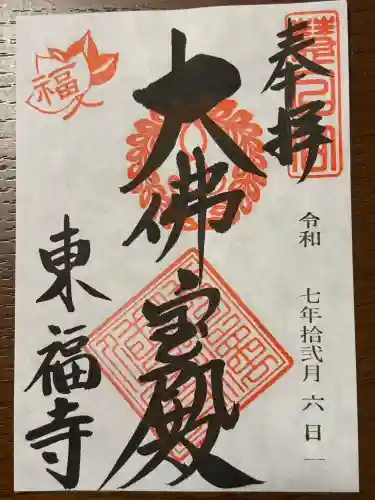 奉拝
令和 七年拾弐月 六 日
大佛宝殿
東福寺
福